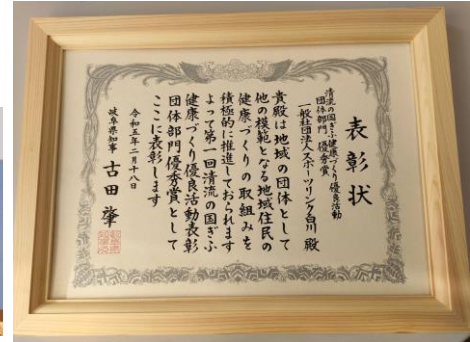 表彰状
清流の国ぎふ健康づくり優良活動
団体部門 優秀賞
一般社団法人スポーツリンク白川 殿
貴殿は地域の団体として
他の模範となる地域住民の
健康づくりの取組みを
積極的に推進しておられます
よって第一回清流の国ぎふ
健康づくり優良活動表彰
団体部門優秀賞として
ここに表彰します
令和五年二月十八日
岐阜県知事 古田 肇